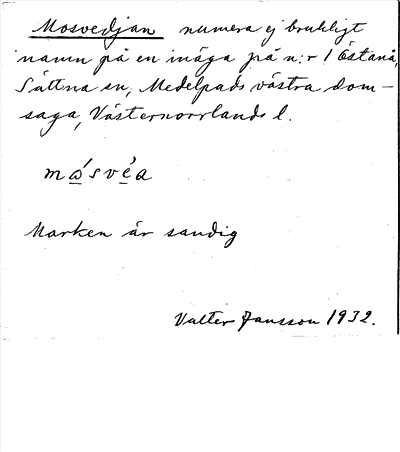 Mosvedjan numera ej brukligt
namn på en inäga på n:r 1 Östanå,
Sättna sn, Medelpads västra dom-
saga, Västernorrlands l.
måsvea
Marken är sandig
Valter Jansson 1932.